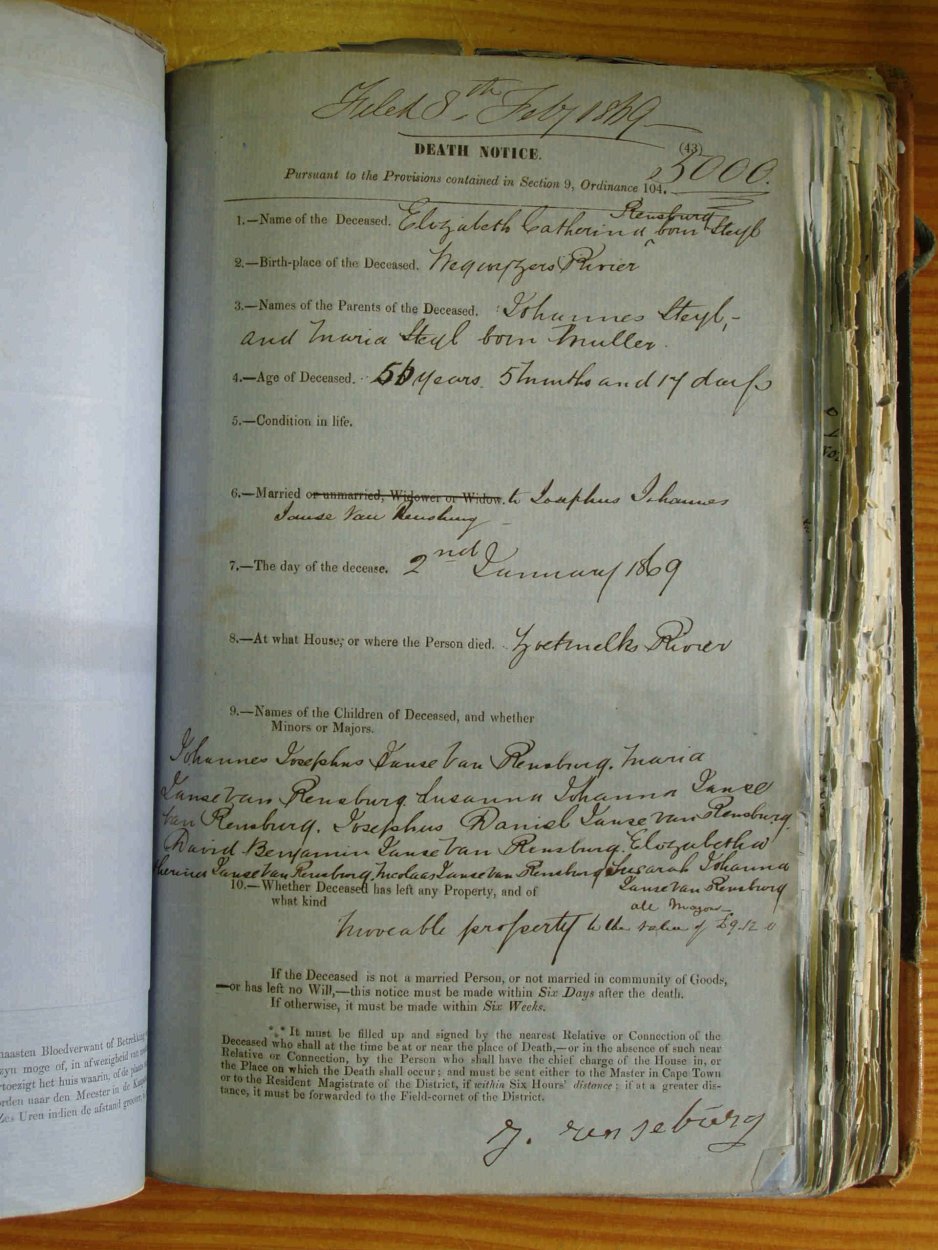 Filed 8th Feby 1869
DEATH NOTICE.
(43)
5000.
Pursuant to the Provisions contained in Section 9, Ordinance 104.
1.—Name of the Deceased. Elizabeth Catherina Rensburg born Steyl
2.—Birth-place of the Deceased. Rivier
3.—Names of the Parents of the Deceased. Johannes Steyl,-
and Maria Steyl born Muller.
4.—Age of Deceased. 56 years. 5 months and 17 days
5.—Condition in life.
6.—Married or unmarried, Widower or Widow. to Josephus Johannes
Janse Van Rensburg
7.—The day of the decease. 2nd January 1869
8.—At what House, or where the Person died. Zoetmelks Rivier
9.—Names of the Children of Deceased, and whether
Minors or Majors.
Johannes Josephus Janse Van Rensburg. Maria
Janse Van Rensburg. Susanna Johanna Janse
Van Rensburg. Josephus Daniel Janse Van Rensburg.
David Benjamin Janse Van Rensburg. Elizabetha
therina Janse Van Rensburg, Nicolaas Janse Van Rensburg, Johanna
Janse Van Rensburg
all Majors
10.—Whether Deceased has left any Property, and of
what kind
Moveable property to the value of £9.12.0
If the Deceased is not a married Person, or not married in community of Goods,
—or has left no Will,—this notice must be made within Six Days after the death.
If otherwise, it must be made within Six Weeks.
*** It must be filled up and signed by the nearest Relative or Connection of the
Deceased who shall at the time be at or near the place of Death,—or in the absence of such near
Relative or Connection, by the Person who shall have the chief charge of the House in, or
the Place on which the Death shall occur; and must be sent either to the Master in Cape Town
or to the Resident Magistrate of the District, if within Six Hours' distance; if at a greater dis-
tance, it must be forwarded to the Field-cornet of the District.
J. renseburg
naasten Bloedverwant of Betrekking
zyn moge of, in afwezigheid van
toezigt het huis waarin, of de plaats
rden naar den Meester in de
Zes Uren indien de afstand grooter